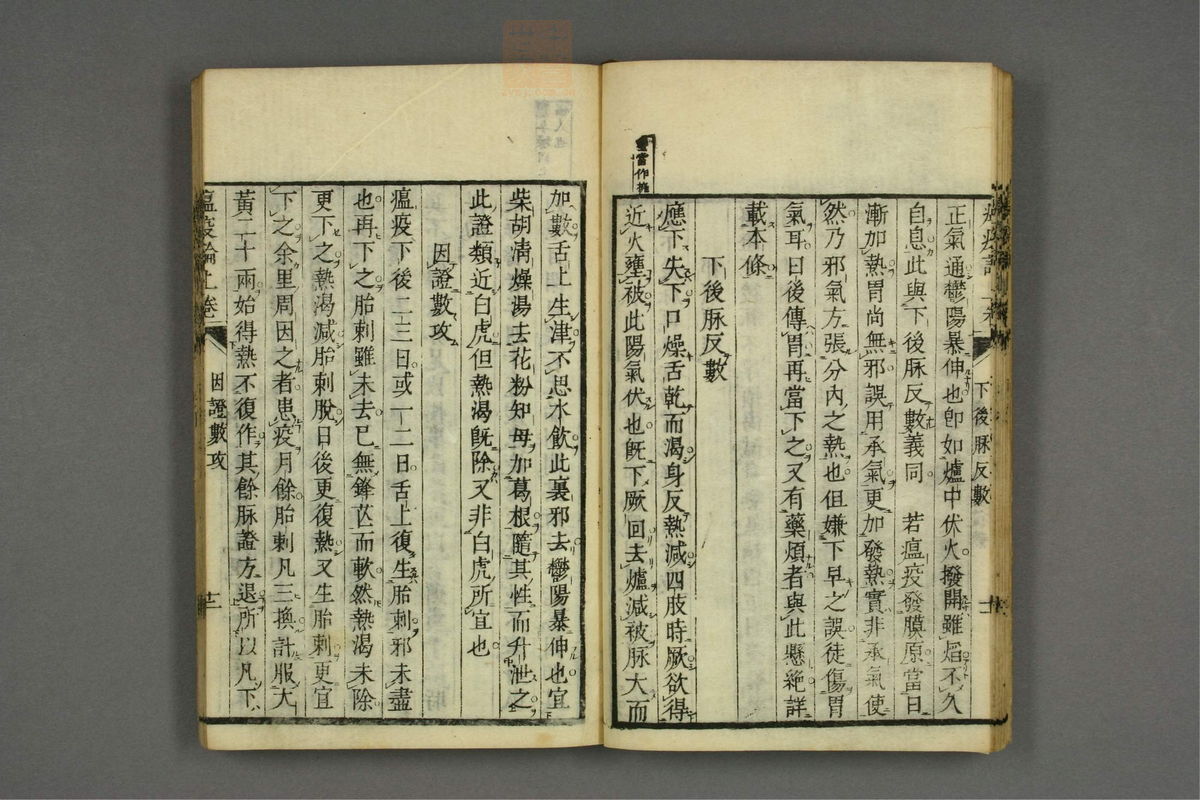 下後脉反數
正氣通鬱陽暴伸也卽如爐中伏火撥開雖熖不久
自息此與下後脉反數義同　若瘟疫發膜原當日
漸加熱胃尚無邪誤用承氣更加發熱實非承氣使
然乃邪氣方張分內之熱也但嫌下早之誤徒傷胃
氣耳日後傳胃再當下之又有藥煩者與此懸絶詳
載本條
下後脉反數
應下失下口燥舌乾而渴身反熱減四肢時厥欲得
近火壅被此陽氣伏也旣下厥回去爐減被脉大而
當作擁
加數舌上生津不思水飲此裏邪去鬱陽暴伸也宜
柴胡清燥湯去花粉知母加葛根隨其性而升泄之
此證類近白虎但熱渴旣除又非白虎所宜也
因證數攻
瘟疫下後二三日或一二日舌上復生胎刺邪未盡
也再下之胎刺雖未去已無鋒芒而軟然熱渴未除
更下之熱渴減胎刺脫日後更復熱又生胎刺更宜
下之余里周因之者患疫月餘胎刺凡三換計服大
黃二十兩始得熱不復作其餘脉證方退所以凡下
瘟疫論上卷
因證數攻
十二